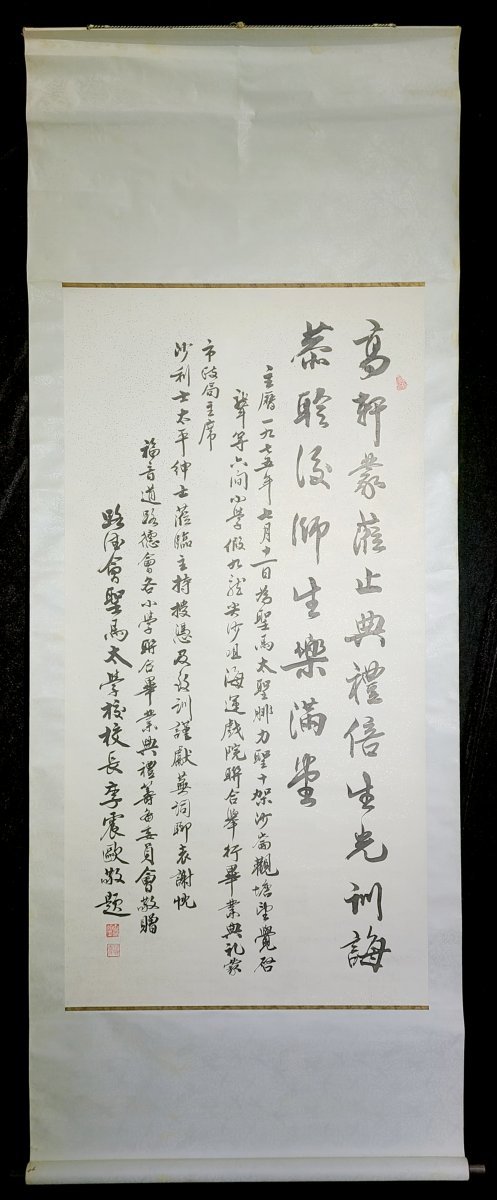 高軒蒙蒞止典禮倍生光訓誨
恭聆後師生樂滿堂
主曆一九七五年七月十一日為聖馬太聖腓力聖十架沙崙觀塘聖覺啓
聾等六間小學假九龍尖沙咀海運戲院聯合舉行畢業典礼蒙
市政局主席
沙利士太平紳士蒞臨主持授憑及致訓謹獻蕪詞聊表謝忱
福音道路德會各小學聯合畢業典禮籌備委員會敬贈
路德會聖馬太學校校長李震歐敬題